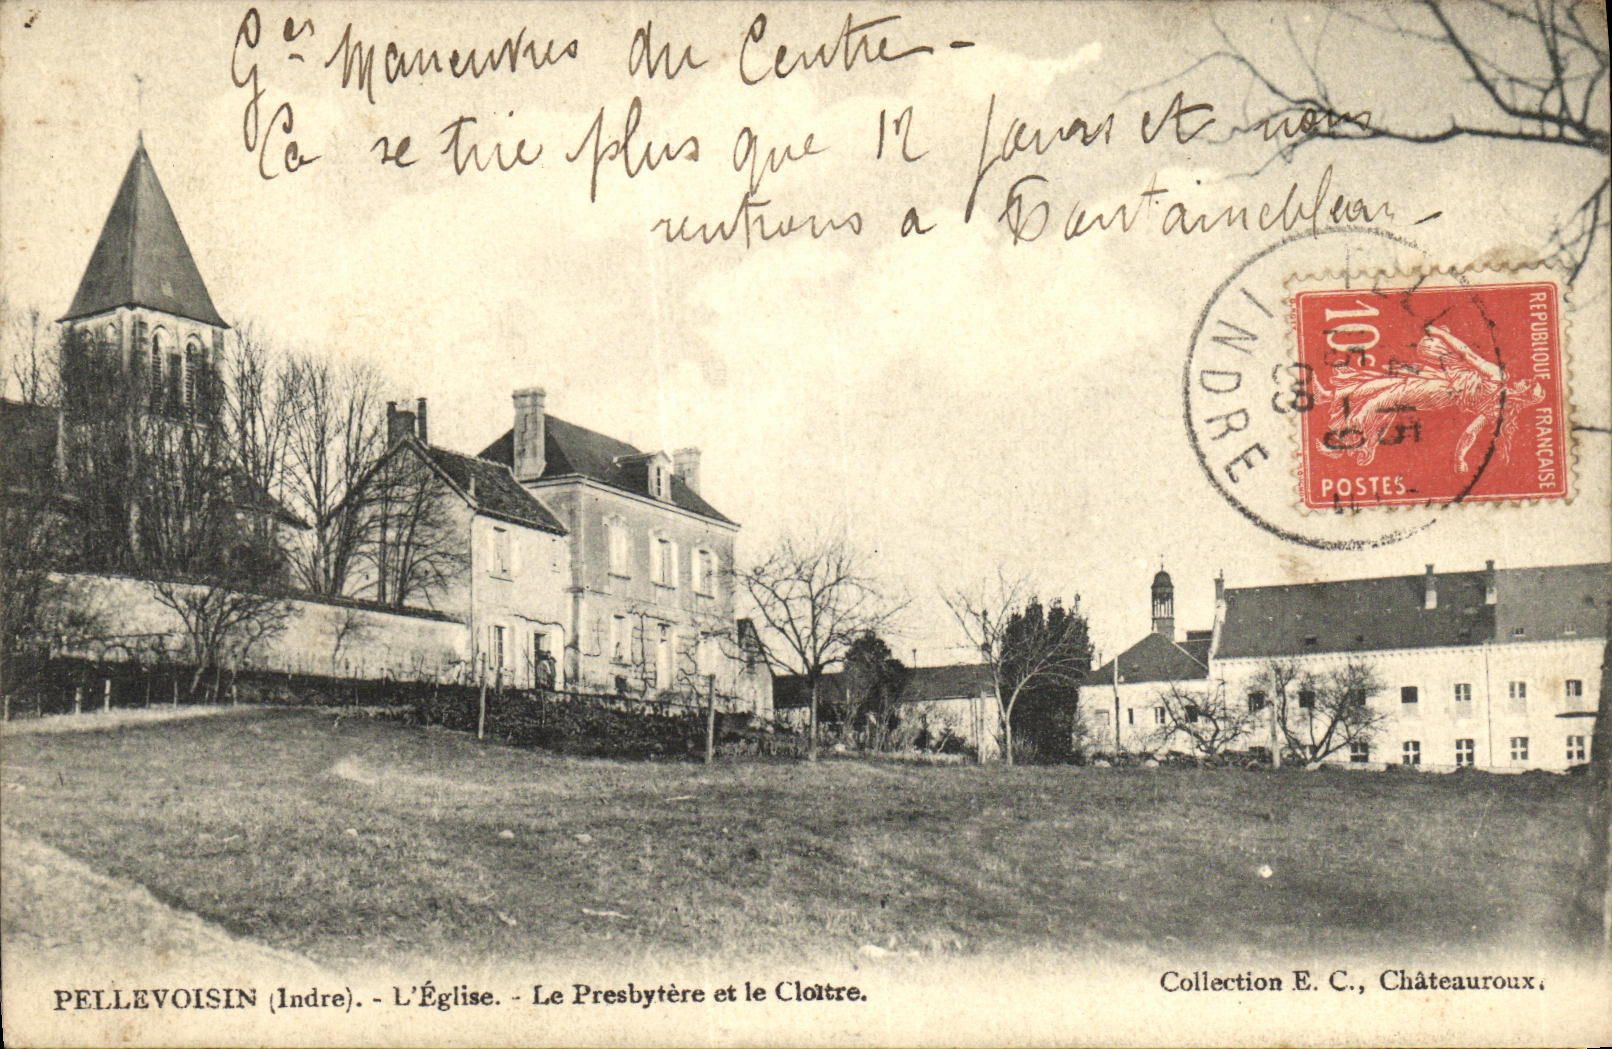 Ges Maneuvres du Centre -
Ca se tire plus que 12 Jours et nous
rentrons a Fontainebleau -
INDRE
15
5 - 9
08
REPUBLIQUE FRANÇAISE
10c
POSTES
PELLEVOISIN (Indre). - L'Église. - Le Presbytère et le Cloître.
Collection E. C., Châteauroux.